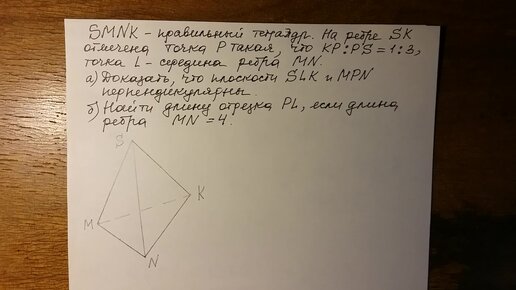 SMNK - правильный тетраэдр. На ребре SK
отмечена точка P такая, что KP:PS=1:3,
точка L - середина ребра MN.
а) Доказать, что плоскости SLK и MPN
перпендикулярны.
б) Найти длину отрезка PL, если длина
ребра MN=4.
S
K
M
N